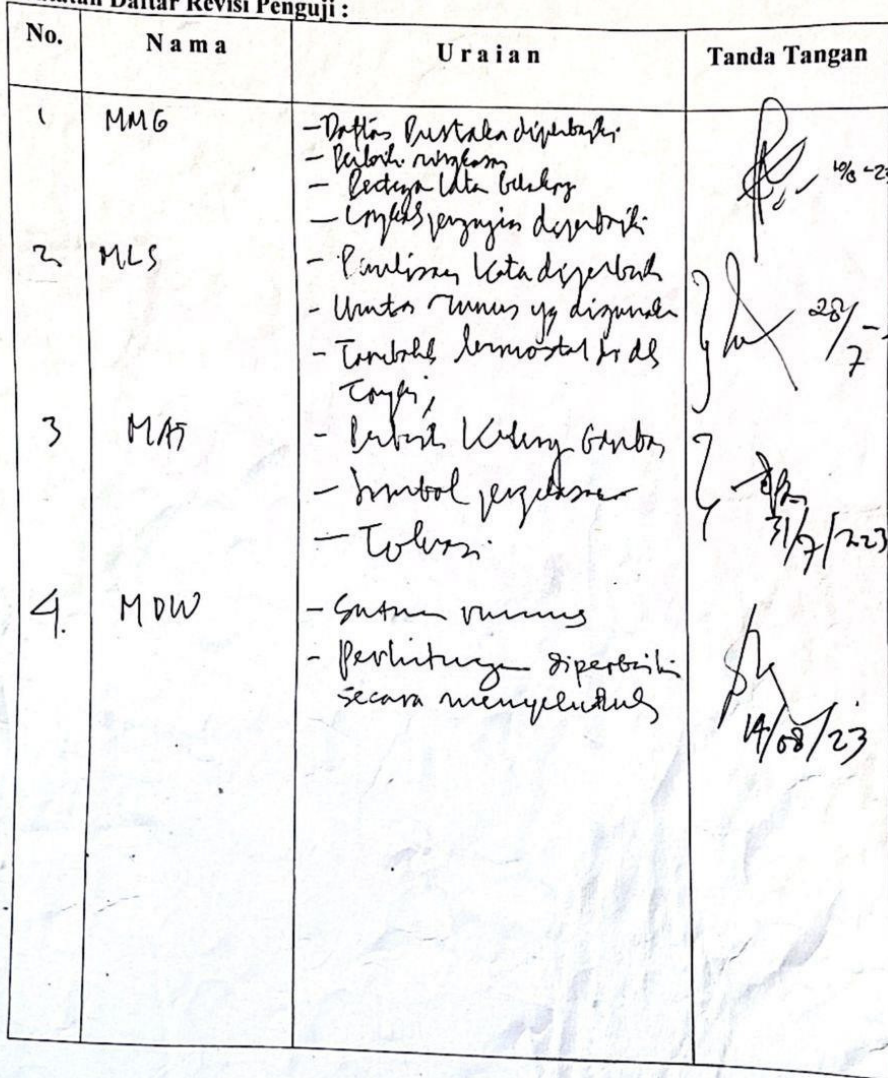 Daftar Revisi Penguji :
No. Nama Uraian Tanda Tangan
1 MMG - Daftar Pustaka diperbaiki
- Perbaiki ringkasan
- Pertegas latar belakang
- pengujian diperbaiki
2 MLS - Penulisan kata diperbaiki
- rumus yg digunakan 28/7
-
3 MAT - Perbaiki Gambar
- Simbol pengelasan
- Toleransi 31/7/223
4. MDW - rumus
- Perhitungan diperbaiki
secara menyeluruh 14/08/23